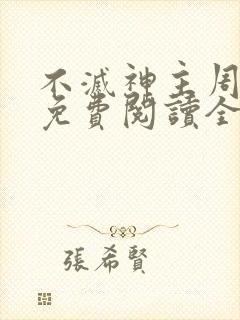 不滅神主周
免費閱讀全
張希賢